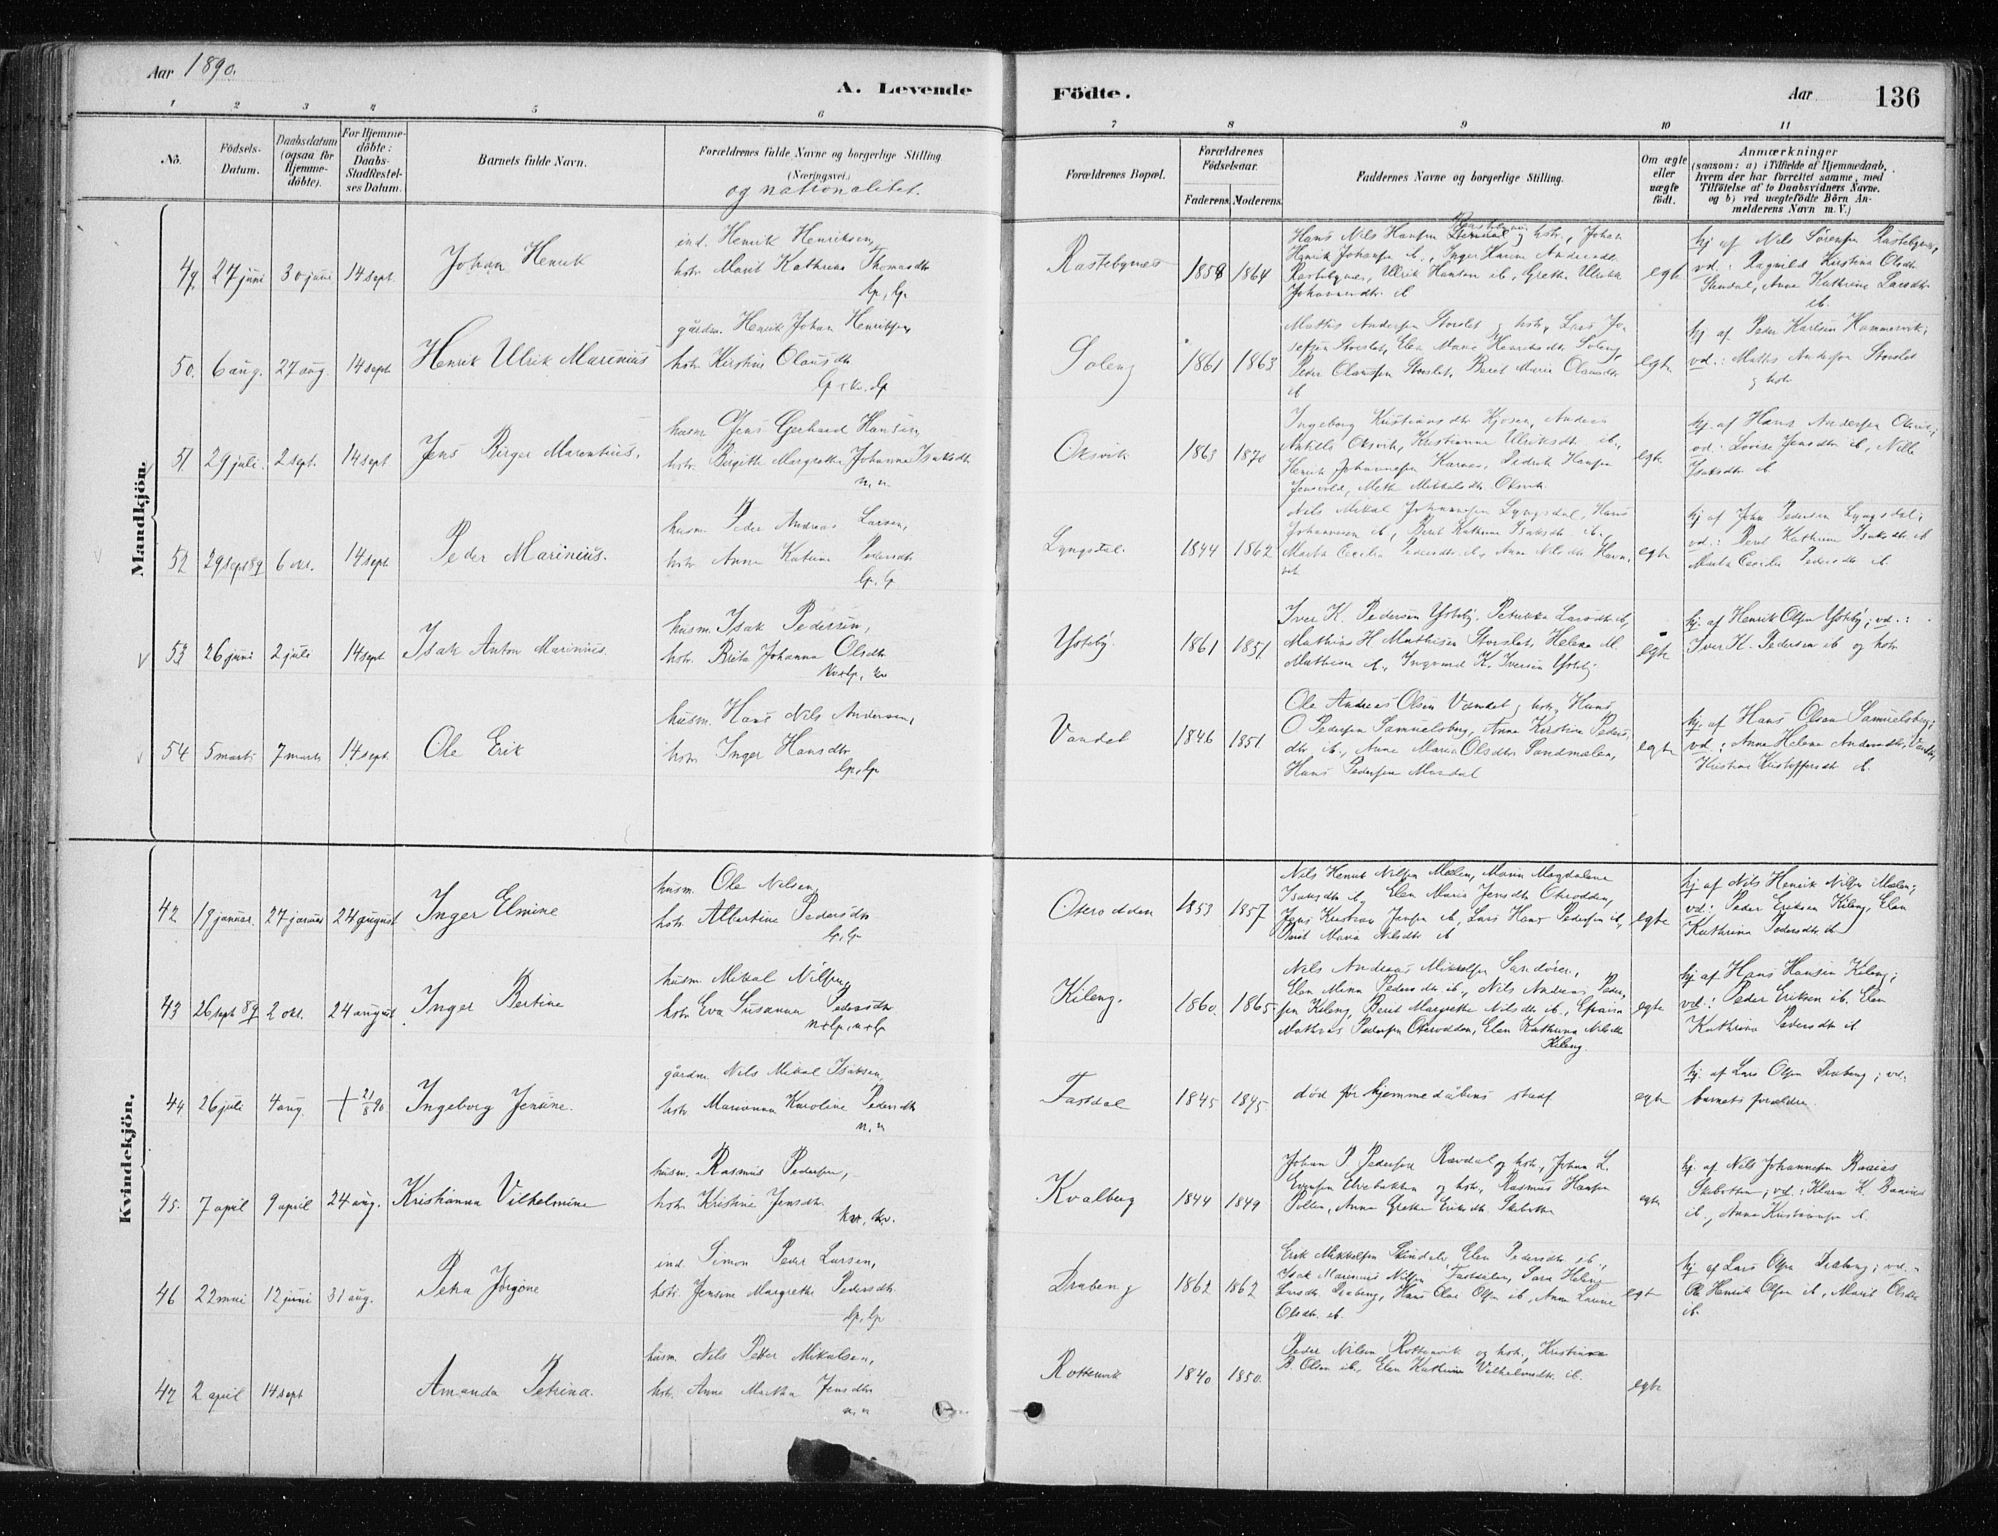 Aar 1890.
A. Levende Födte.
Aar 136
1 2 3 4 5 6 7 8 9 10 11
No.
Födsels-Datum.
Daabsdatum (ogsaa for Hjemmedöbte).
For Hjemmedöbte: Daabs-Stadfæstelses Datum.
Barnets fulde Navn.
Forældrenes fulde Navne og borgerlige Stilling (Næringsvei.)
og nationalitet.
Forældrenes Bopæl.
Forældrenes Födselsaar.
Faderens. Moderens.
Faddernes Navne og borgerlige Stilling.
Om ægte eller uægte födt.
Anmærkninger
(saasom: a) i Tilfælde af Hjemmedaab, hvem der har forrettet samme, med Tilföielse af to Daabsvidners Navne. og b) ved uægtefödte Börn Anmelderens Navn m. V.)
Mandkjön.
49. 27 juni 30 juni 14 sept. Johan Henrik
ind. Henrik Henriksen,
hstr. Marit Kathrina Thomasdtr
lp, lp
Rastebynes 1858 1864
Hans Nils Hansen og hstr., Johan
Henrik Johansen ib., Inger Karen Andersdtr
Rastebynes, Ulrik Hansen ib., Grethe Ulrikke
Johannesdtr. ib
egte
hj af Nils Sørensen Rastebynes,
vd.: Ragnild Kirstina Olsdtr.
Sandal, Anne Kathrine Larsdtr
ib.
50. 6 aug. 27 aug. 14 sept Henrik Ulrik Marinius
gårdm. Henrik Johan Henriksen,
hstr. Kirstine Olausdtr
Soleng 1861 1863
Mathis Andersen Storslet og hstr, Lars Josefsen Storslet, Elen Marie Henriksdtr Soleng,
Peder Olaussen Storslet, Beret Maria Olausdtr
ib
egte
hj af Peder Karlsen Hammervik;
vd.: Mathis Andersen Storslet
og hstr
51 29 juli. 2 sept. 14 sept Jens Birger Marentius,
husm Jens Gerhard Hansen,
hstr. Birgitte Margrethe Johanne Isaksdtr
n, n
Oksvik 1863 1870
Ingeborg Kristiansdtr Kjosen, Anders
Oksvik, Kristianne Ulriksdtr ib.,
Henrik Johannesen Karnes, Hansen
Jensvold, Mette Mikkelsdtr Oksvik.
egte
hj. af Hans Andersen Oksvik;
vd.: Lovise Jensdtr ib, Nille
Isaksdtr ib
52 29 sept 89 6 okt. 14 sept Peder Marinius.
husm. Peder Andreas Larsen,
hstr. Anne Katrine Pedersdtr
lp, lp
Lyngsdal. 1844 1862
Nils Mikal Johannesen Lyngsdal, Hans
Johannesen ib, Beret Kathrine Isaksdtr ib.
Marta Cecilia Pedersdtr ib, Anne Nilsdtr Havnvik
egte
hj af John Pedersen Lyngsdal;
vd.: Beret Kathrine Isaksdtr ib
Marta Cecilie Pedersdtr ib.
53 26 juni 2 juli 14 sept Isak Anton Marinius.
husm. Isak Pedersen,
hstr. Brita Johanna Olsdtr
kv+lp, kv
Ysteby. 1861 1851
Iver K. Pedersen Ysteby. Petrikka Larsdtr ib,
Mathias H Mathisen Storslet, Helene M.
Mathisen ib., Ingvard K. Iversen Ysteby
egte
hj. af Henrik Olsen Ysteby; vd.:
Iver K. Pedersen ib og hstr
54 5 marts 7 marts 14 sept. Ole Erik
husm. Hans Nils Andersen,
hstr Inger Hansdtr
lp, lp
Vandet 1846 1851
Ole Andreas Olsen Vandet og hstr, Hans
O Pedersen Samuelsberg, Anne Kirstine Pedersdtr ib., Anne Maria Olsdtr Sandmælen,
Hans Pedersen
egte
hj. af Hans Olsen Samuelsberg;
vd.: Anne Helene Andersdtr Vandet,
Kristine Kristoffersdtr ib.
Kvindekjön.
42 19 januar. 27 januar 24 august Inger Elmine
husm. Ole Nilsen,
hstr. Albertine Pedersdtr
lp, lp
Oterodden 1853 1857
Nils Henrik Nilsen Mælen, Maria Magdalena
Isaksdtr ib, Elen Maria Jensdtr Oterodden,
Jens Kristian Jensen ib, Lars Hans Pedersen ib,
Berit Maria Nilsdtr ib
egte
hj af Nils Henrik Nilsen Mælen;
vd.: Peder Eriksen Kileng, Elen
Kathrina Pedersdtr ib
43 26 sept 89 2 okt. 24 august Inger Bertine
husm. Mikal Nilsen,
hstr Eva Susanna Pedersdtr
n+lp, n+lp
Kileng. 1860. 1865
Nils Andreas Mikkelsen Sandøren,
Elen Mina Pedersdtr ib., Nils Andreas Pedersen Kileng, Beret Margrethe Nilsdtr ib, Efraim
Mathias Pedersen Oterodden, Elen Kathrina Nilsdtr
Kileng.
egte
hj. af Hans Hansen Kileng;
vd.: Peder Eriksen ib. Elen
Kathrina Pedersdtr ib
44 26 juli 4 aug. + 21/8 90 Ingeborg Jensine.
gårdm. Nils Mikal Isaksen,
hstr. Marianna Karoline Pedersdtr
n, n
Fastdal 1845 1845
død før hjemmedåbens stadf
egte
hj. af Lars Olsen Draberg; vd.
barnets forældre.
45. 7 april 9 april 24 aug. Kristianna Vilhelmine
husm. Rasmus Pedersen,
hstr. Kristine Jensdtr.
kv, kv.
Kvalberg 1844 1849
Johan P. Pedersen Rævdal og hstr, Johan L.
Evensen Elvebakken og hstr, Rasmus Hansen
Pollen, Anna Grethe Eriksdtr Skibotten
egte
hj. af Nils Johannesen
Skibotten; vd.: Klara K.
ib., Anne Kristiansen ib.
46 22 mai 12 juni 31 aug. Petra Jørgine
ind. Simon Peder Larsen,
hstr. Jensine Margrethe Pedersdtr.
lp, lp
Draberg 1862 1862
Erik Mikkelsen Skindalen, Elen Pedersdtr ib.,
Isak Marenius Nilsen Fastdalen, Sara Helene
Larsdtr Draberg, Hans Olai Olsen ib, Anne Lovise
Olsdtr. ib.
egte
hj af Lars Olsen Draberg; vd.
Ole Henrik Olsen ib, Marit Olsdtr
ib.
47 2 april 14 sept Amanda Petrina.
husm. Nils Petter Mikalsen,
hstr. Anne Martha Jensdtr
n, n
Rottenvik 1840 1850.
Peder Nilsen Rottenvik og hstr, Kristine
B. Olsen ib., Elen Kathrine Vilhelmsdtr ib.
egte